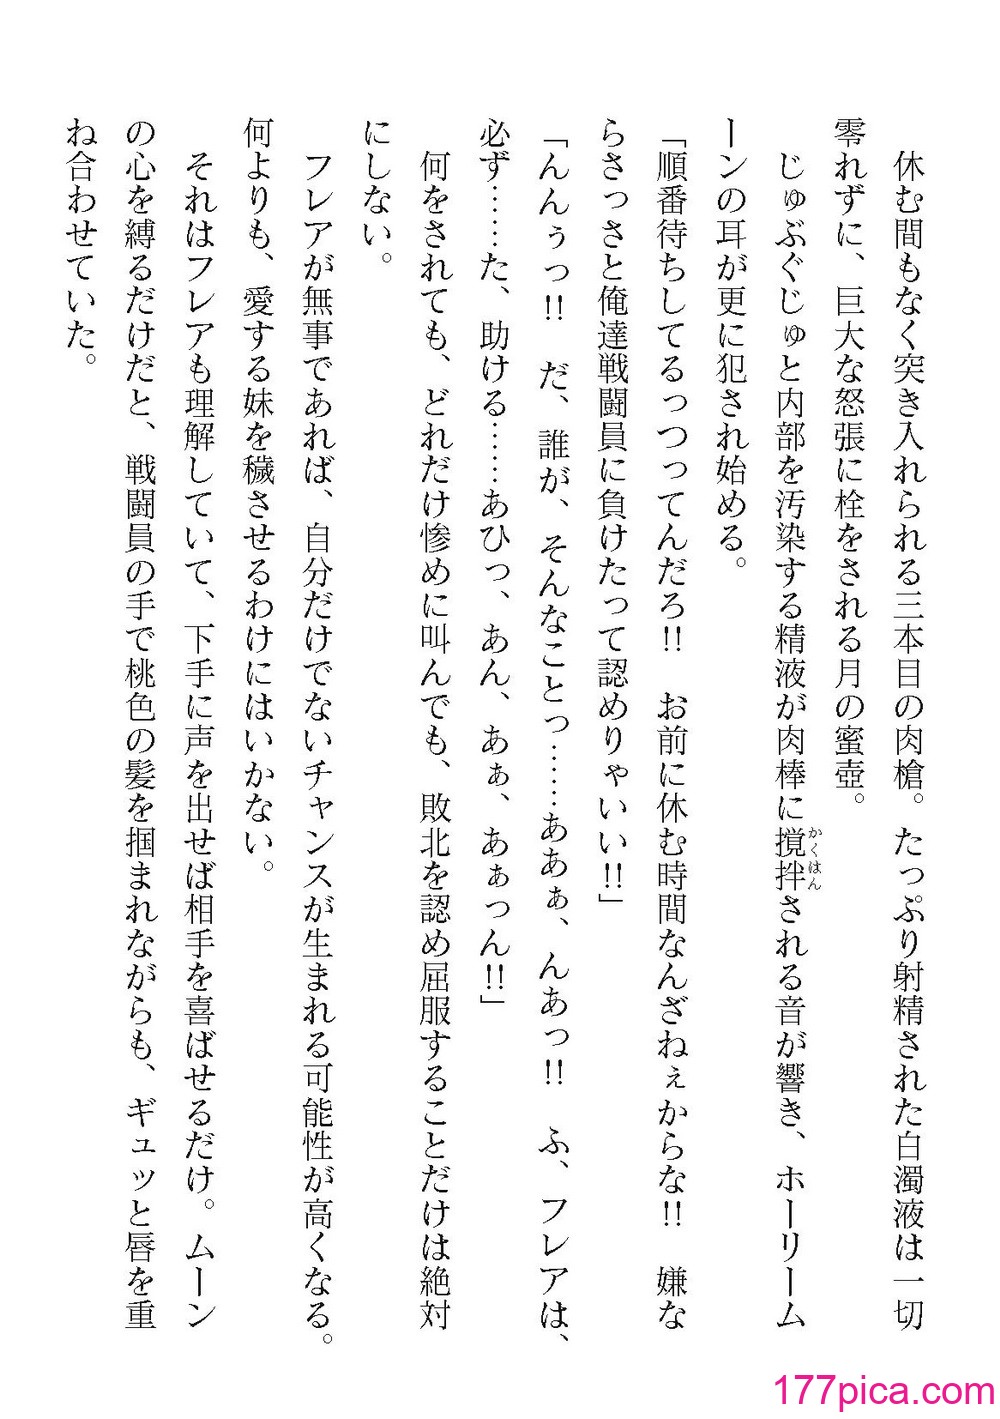 休む間もなく突き入れられる三本目の肉槍。たっぷり射精された白濁液は一切
零れずに、巨大な怒張に栓をされる月の蜜壺。
じゅぶぐじゅと内部を汚染する精液が肉棒に攪拌される音が響き、ホーリーム
かくはん
ーンの耳が更に犯され始める。
「順番待ちしてるっつってんだろ!! お前に休む時間なんざねぇからな!! 嫌な
らさっさと俺達戦闘員に負けたって認めりゃいい!!」
「んんぅっ!! だ、誰が、そんなことっ……ああぁ、んあっ!! ふ、フレアは、
必ず……た、助ける……あひっ、あん、あぁ、あぁっん!!」
何をされても、どれだけ惨めに叫んでも、敗北を認め屈服することだけは絶対
にしない。
フレアが無事であれば、自分だけでないチャンスが生まれる可能性が高くなる。
何よりも、愛する妹を穢させるわけにはいかない。
それはフレアも理解していて、下手に声を出せば相手を喜ばせるだけ。ムーン
の心を縛るだけだと、戦闘員の手で桃色の髪を掴まれながらも、ギュッと唇を重
ね合わせていた。
177pica.com